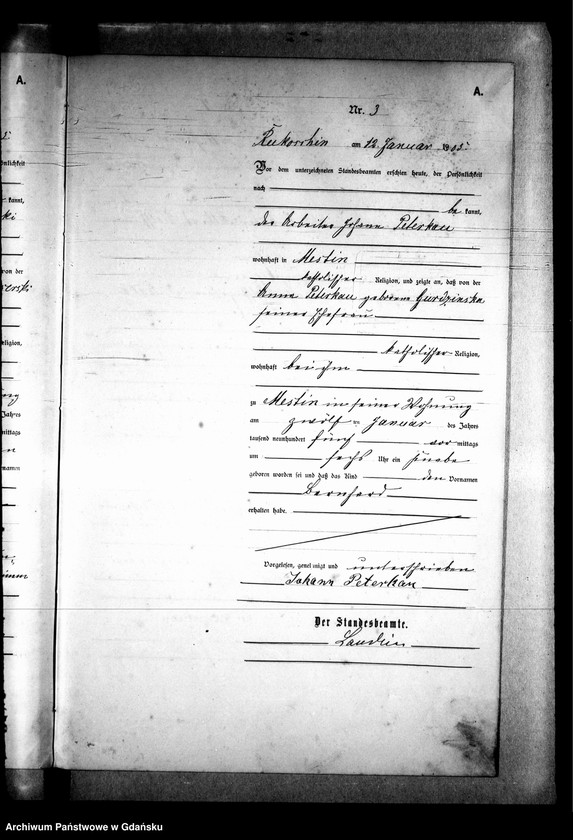 A.
A.
Nr. 3
Rukoschin am 12 Januar 1905.
Vor dem unterzeichneten Standesbeamten erschien heute, der Persönlichkeit
nach
be kannt,
der Arbeiter Johann Peterkau
wohnhaft in Mestin
katholischer Religion, und zeigte an, daß von der
Anna Peterkau geborene Gurdzinska
seiner Ehefrau
katholischer Religion,
wohnhaft bei ihm
zu Mestin in seiner Wohnung
am zwölf ten Januar des Jahres
tausend neunhundert fünf vor mittags
um sechs Uhr ein Knabe
geboren worden sei und daß das Kind den Vornamen
Bernhard
erhalten habe.
Vorgelesen, genehmigt und unterschrieben
Johann Peterkau
Der Standesbeamte.
Archiwum Państwowe w Gdańsku